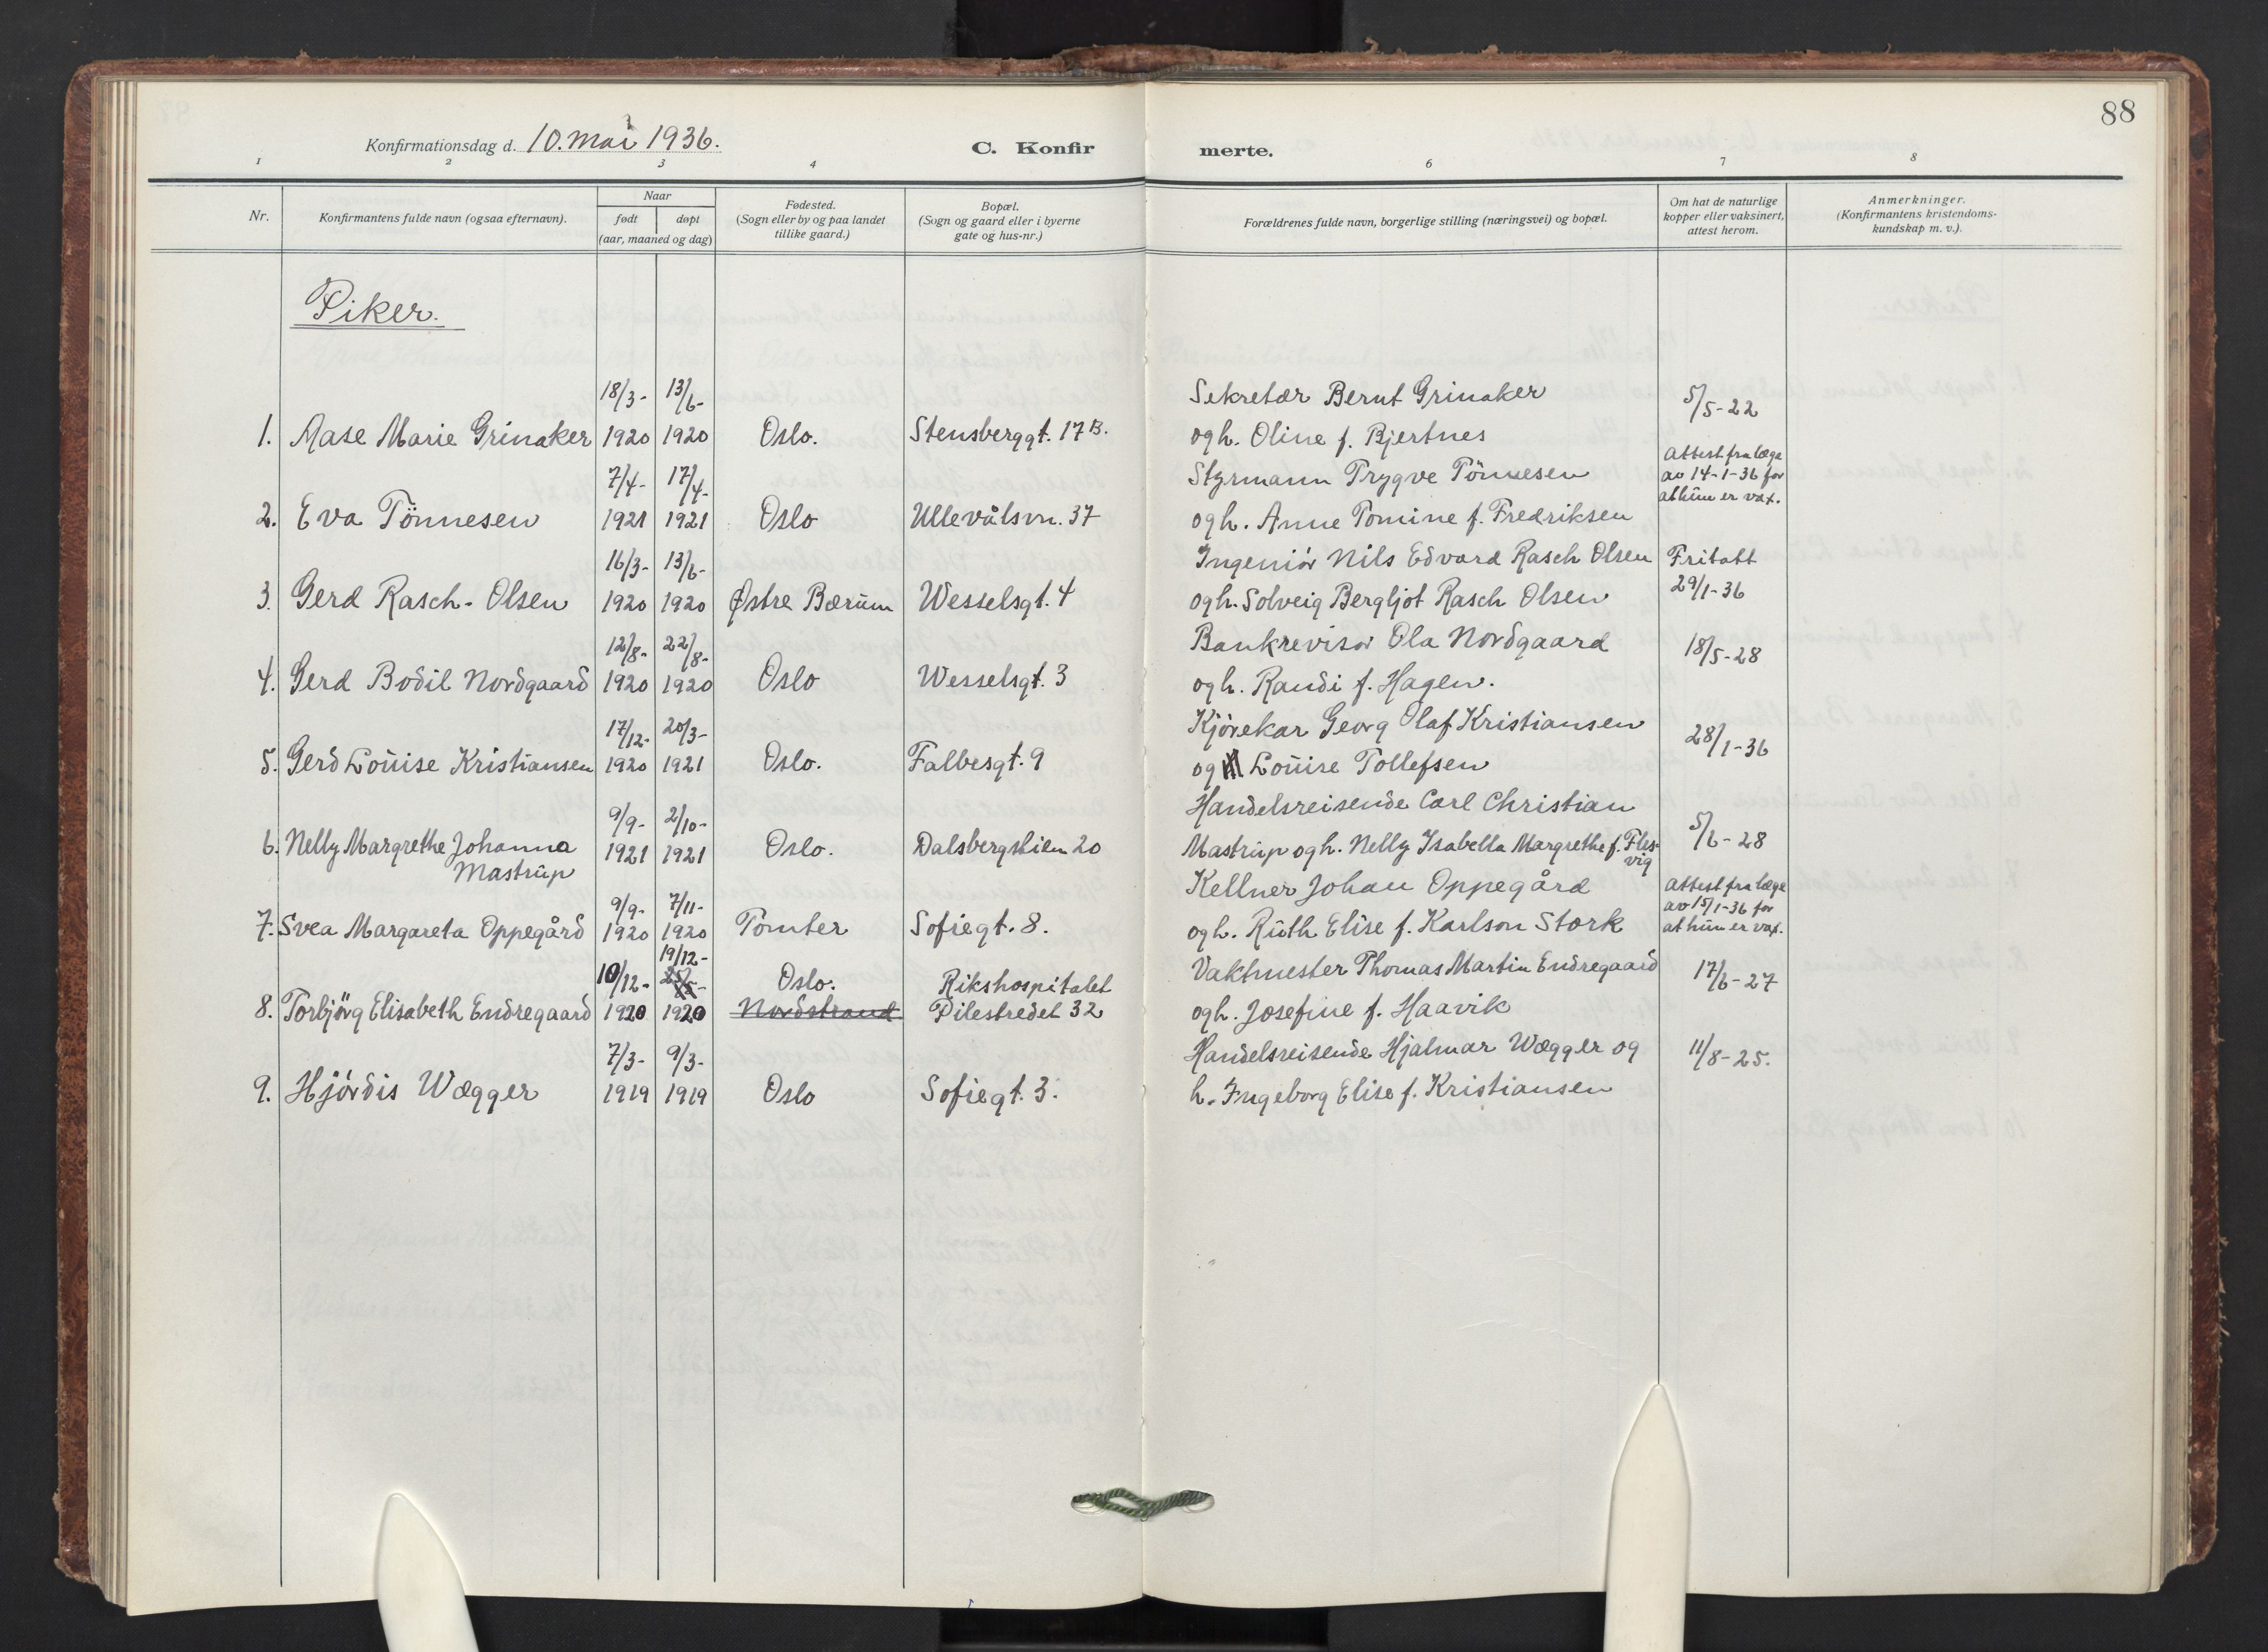 88
Konfirmationsdag d. 10. Mai 1936.
C. Konfir merte.
1 2 3 4 6 7 8
Nr.
Konfirmantens fulde navn (ogsaa efternavn).
Naar
født døpt
(aar, maaned og dag)
Fødested.
(Sogn eller by og paa landet
tillike gaard.)
Bopæl.
(Sogn og gaard eller i byerne
gate og hus-nr.)
Forældrenes fulde navn, borgerlige stilling (næringsvei) og bopæl.
Om hat de naturlige
kopper eller vaksinert,
attest herom.
Anmerkninger.
(Konfirmantens kristendoms-
kundskap m. v.).
Piker.
18/3- 13/6- Sekretær Bernt Grinaker 5/5-22
1. Aase Marie Grinaker 1920 1920 Oslo. Stensberggt. 17B. og h. Oline f. Bjertnes
Attest fra læge
7/4- 17/4- Styrmann Trygve Tönnesen av 14-1-36 for
at hun er vax.
2. Eva Tönnesen 1921 1921 Oslo Ullevålsvn. 37 og h. Anne Tomine f. Fredriksen
16/3- 13/6- Ingeniör Nils Edvard Rasch Olsen Fritatt
3. Gerd Rasch-Olsen 1920 1920 Østre Bærum Wesselsgt. 4 og h. Solveig Bergljot Rasch Olsen 29/1-36
12/8- 22/8- Bankrevisor Ola Nordgaard 18/5-28
4. Gerd Bodil Nordgaard 1920 1920 Oslo Wesselsgt. 3 og h. Randi f. Hagen.
17/12- 20/3- Kjörekar Georg Olaf Kristiansen 28/1-36
5. Gerd Louise Kristiansen 1920 1921 Oslo. Falbesgt. 9 og Louise Tollefsen
9/9- 2/10- Handelsreisende Carl Christian
6. Nelly Margrethe Johanna 1921 1921 Oslo. Dalsbergstien 20 Mastrup og h. Nelly Isabella Margrethe f. Fles- 5/6-28
Mastrup vig
9/9- 7/11- Kellner Johan Oppegård Attest fra læge
av 15/1-36 for
7. Svea Margareta Oppegård 1920 1920 Tomter Sofiegt. 8. og h. Ruth Elise f. Karlson Stork at hun er vax.
19/12-
10/12- Oslo. Rikshospitalet Vaktmester Thomas Martin Endregaard 17/6-27
8. Torbjörg Elisabeth Endregaard 1920 1920 Nordstrand Pilestredet 32 og h. Josefine f. Haavik
7/3- 9/3- Handelsreisende Hjalmar Wægger og 11/8-25.
9. Hjördis Wægger 1919 1919 Oslo Sofiegt. 3. h. Ingeborg Elise f. Kristiansen